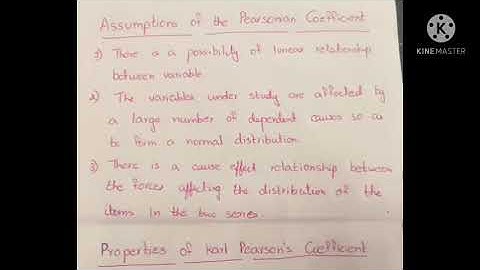 Assumptions of the Pearsonian Coefficient
KINEMASTER
1) There is a possibility of linear relationship
between variable
2) The variables under study are affected by
a large number of dependent causes so as
to form a normal distribution.
3) There is a cause effect relationship between
the forces affecting the distribution of the
items in the two series.
Properties of Karl Pearson's Coefficient